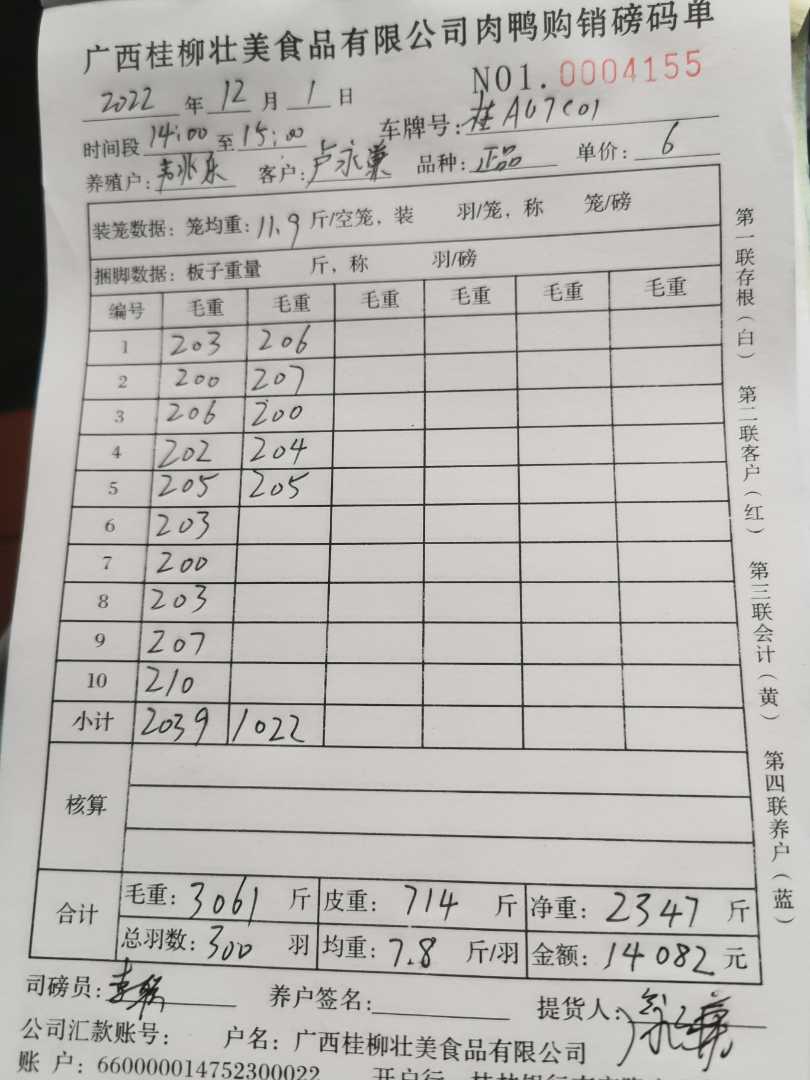 广西桂柳壮美食品有限公司肉鸭购销磅码单
NO1.0004155
2022年12月1日
时间段14:00至15:00 车牌号:桂A07C01
养殖户:韦兆乐 客户:卢永 品种:正品 单价:6
装笼数据:笼均重:11.9斤/空笼,装 羽/笼,称 笼/磅
捆脚数据:板子重量 斤,称 羽/磅
编号 毛重 毛重 毛重 毛重 毛重 毛重
1 203 206
2 200 207
3 206 200
4 202 204
5 205 205
6 203
7 200
8 203
9 207
10 210
小计 2039 1022
核算
合计 毛重:3061斤 皮重:714斤 净重:2347斤
总羽数:300羽 均重:7.8斤/羽 金额:14082元
司磅员: 养户签名: 提货人:
公司汇款账号: 户名:广西桂柳壮美食品有限公司
账户:660000014752300022 开户行
第一联存根(白) 第二联客户(红) 第三联会计(黄) 第四联养户(蓝)